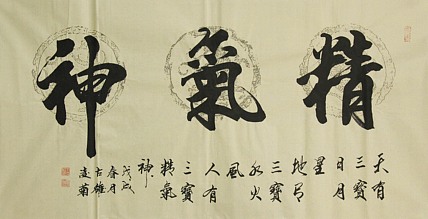 精氣神
天有
三寶
日月
星
地有
三寶
水火
風
人有
三寶
精氣
神
戊戌
春月
古雄